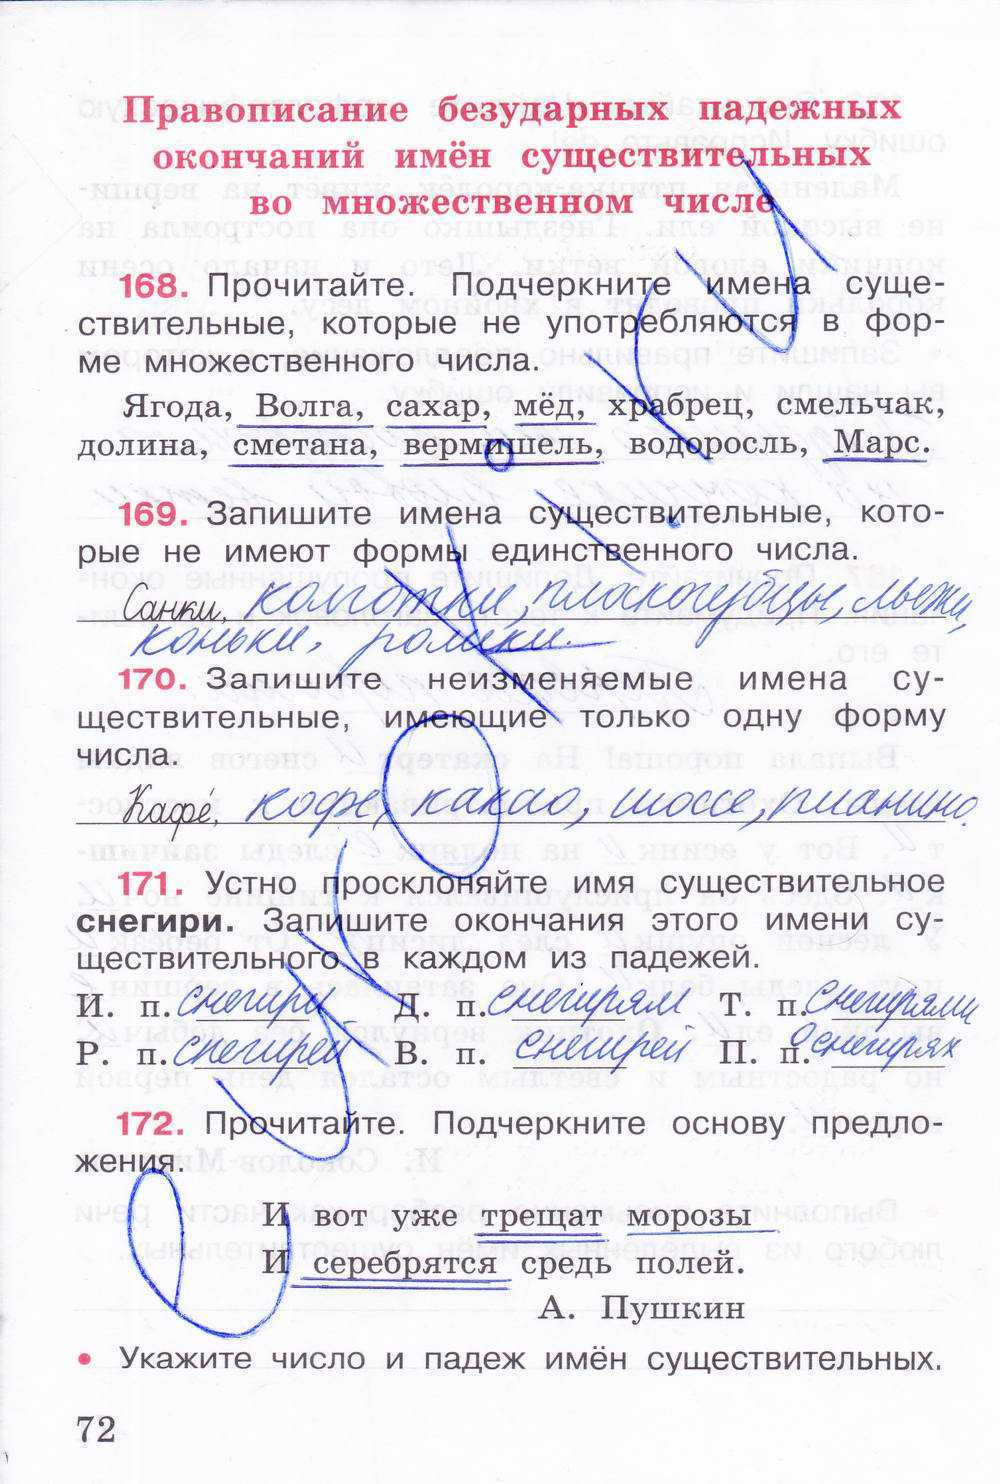 Правописание безударных падежных
окончаний имён существительных
во множественном числе
168. Прочитайте. Подчеркните имена суще-
ствительные, которые не употребляются в фор-
ме множественного числа.
Ягода, Волга, сахар, мёд, храбрец, смельчак,
долина, сметана, вермишель, водоросль, Марс.
169. Запишите имена существительные, кото-
рые не имеют формы единственного числа.
Санки, колготки, плоскогубцы, лыжи,
коньки, ролики.
170. Запишите неизменяемые имена су-
ществительные, имеющие только одну форму
числа.
Кафе́, кофе, какао, шоссе, пианино.
171. Устно просклоняйте имя существительное
снегири. Запишите окончания этого имени су-
ществительного в каждом из падежей.
И. п. снегири Д. п. снегирям Т. п. снегирями
Р. п. снегирей В. п. снегирей П. п. о снегирях
172. Прочитайте. Подчеркните основу предло-
жения.
И вот уже трещат морозы
И серебрятся средь полей.
А. Пушкин
• Укажите число и падеж имён существительных.
72